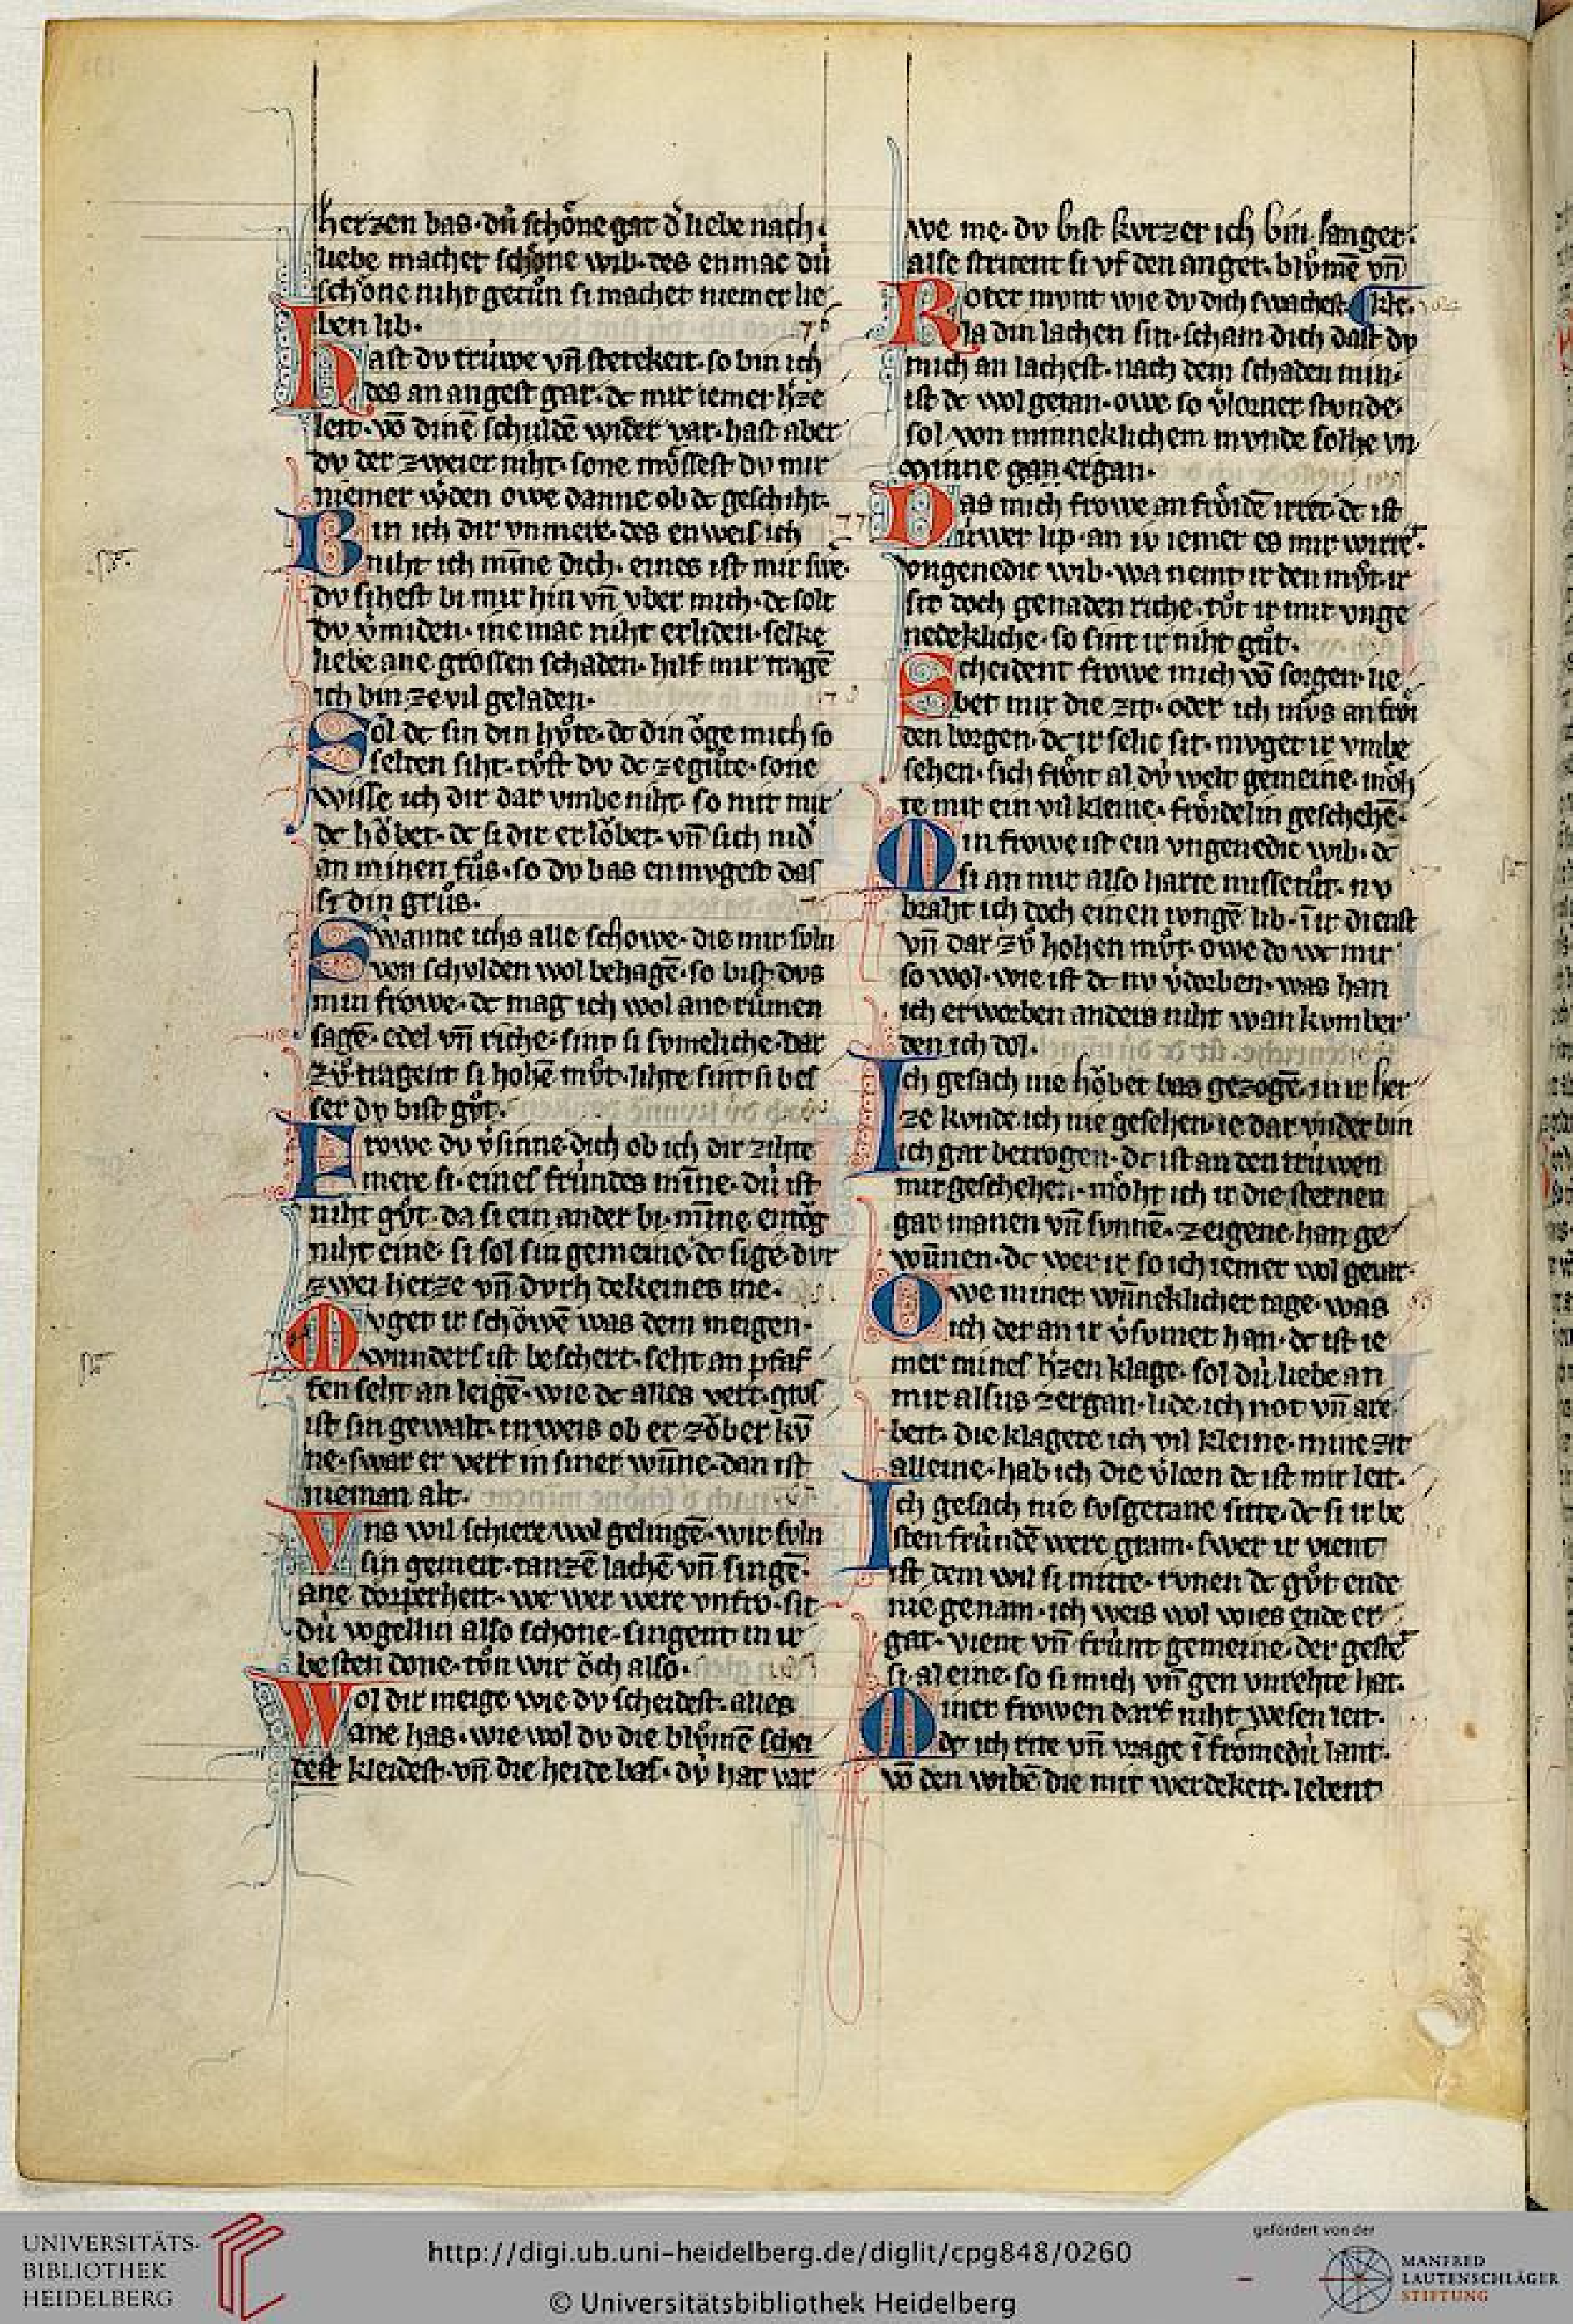 herzen bas·dú schoͤne gat d̾ liebe nach·
liebe machet schoͤne wib·des enmac dú
schoͤne niht getuͦn si machet niemer lie
ben lib·
Hast dv trúwe vn̄ stetekeit·so bin ich
des an angest gar·dc mir iemer h̾ze
leit·vō dinē schuldē wider var·hast aber
dv der zweier niht·sone moͤssest dv mir
niemer w̾den owe danne ob dc geschiht·
Bin ich dir vnmere·des enweis ich
niht ich mīne dich·eines ist mir swe·
dv sihest bi mir hin vn̄ vber mich·dc solt
dv v̾miden·ine mac niht erliden·selke
liebe ane grossen schaden·hilf mir tragē
ich bin ze vil geladen·
Sol dc sin din huͦte·dc din oͮge mich so
selten siht·tuͦst dv dc ze guͤte·sone
wisse ich dir dar vmbe niht·so mit mir
dc hoͮbet·dc si dir erloͮbet·vn̄ sich nid̾
an minen fuͦs·so dv bas enmvgest das
si din gruͦs·
Swanne ichs alle schowe·die mir svln
von schvlden wol behagē·so bist dvs
min frowe·dc mag ich wol ane ruͤmen
sagē·edel vn̄ riche·sint si svmeliche·dar
zuͦ tragent si hohē muͦt·lihte sint si bes
ser dv bist guͦt·
Frowe dv v̾sinne dich ob ich dir zihte
mere si·eines frúndes mīne·dú ist
niht guͦt·da si ein ander bi·mīne entoͮg
niht eine·si sol sin gemeine·dc si ge dvr
zwei herze vn̄ dvrh dekeines me·
Mvget ir schoͮwē was dem meigen·
wunders ist beschert·seht an pfaf
fen seht an leigē·wie dc alles vert·gros
ist sin gewalt·in weis ob er zoͮber kv̄
ne·swar er vert in siner wūne·dan ist
nieman alt·
Vns wil schiere wol gelingē·wir svln
sin gemeit·tanzē lachē vn̄ singē·
ane dorperheit·we wer were vnfro·sit
dú vogellin also schone·singent in ir
besten done·tuͦn wir oͮch also·
Wol dir meige wie dv scheidest·alles
ane has·wie wol dv die bluͦmē schei
dest kleidest·vn̄ die heide bas·dú hat var
we me·dv bist kvrzer ich bin langer·
alse stritent si vf den anger·bluͦmē vn̄
Roter mvnt wie dv dich swachest· kle·
la din lachen sin·scham dich dast dv
mich an lachest·nach dem schaden min·
ist dc wol getan·owe so v̾lorner stvnde·
sol von minneklichem mvnde solhe vn
minne gan ergan·
Das mich frowe an froͤidē irret·dc ist
úwer lip·an iv iemer es mir wirret·
vngenedic wib·wa nemt ir den muͦt·ir
sit doch genaden riche·tuͦt ir mir vnge
nedekliche·so sint ir niht guͦt·
Scheident frowe mich vō sorgen·lie
bet mir die zit·oder ich mvͦs an froͤi
den borgen·dc ir selic sit·mvget ir vmbe
sehen·sich froͤit al dú welt gemeine·moͤh
te mir ein vil kleine·froͤidelin geschehē·
Min frowe ist ein vngenedic wib·dc
si an mir also harte missetuͦt·nv
braht ich doch einen ivngē lib·in ir dienst
vn̄ dar zuͦ hohen muͦt·owe do wc mir
so wol·wie ist dc nv v̾dorben·was han
ich erworben anders niht wan kvmber
den ich dol·
Ich gesach nie hoͮbet bas gezogē·in ir her
ze konde ich nie gesehen·ie dar vnder bin
ich gar betrogen·dc ist an den trúwen
mir geschehen·moͤht ich ir die sternen
gar manen vn̄ svnnē·zeigene han ge
wūnen·dc wer ir so ich iemer wol getir·
Owe miner wūneklicher tage·was
ich der an ir v̾svmet han·dc ist ie
mer mines h̾zen klage·sol dú liebe an
mir alsus zergan·lide ich not vn̄ are
beit·die klagete ich vil kleine·mine zit
alleine·hab ich die v̾lorn dc ist mir leit·
Ich gesach nie svsgetane sitte·dc si ir be
sten frúndē were gram·swer ir vient
ist dem wil si mitte·rvnen dc guͦt ende
nie genam·ich weis wol wies ende er
gat·vient vn̄ frúnt gemeine·der gestet
si al eine·so si mich vn̄ gen vnrehte hat·
Miner frowen darf niht wesen leit·
dc ich rite vn̄ vrage ī froͤmedú lant·
vō den wibē die mit werdekeit·lebent
UNIVERSITÄTS-
BIBLIOTHEK
HEIDELBERG
http://digi.ub.uni-heidelberg.de/diglit/cpg848/0260
© Universitätsbibliothek Heidelberg
gefördert von der
MANFRED
LAUTENSCHLÄGER
STIFTUNG